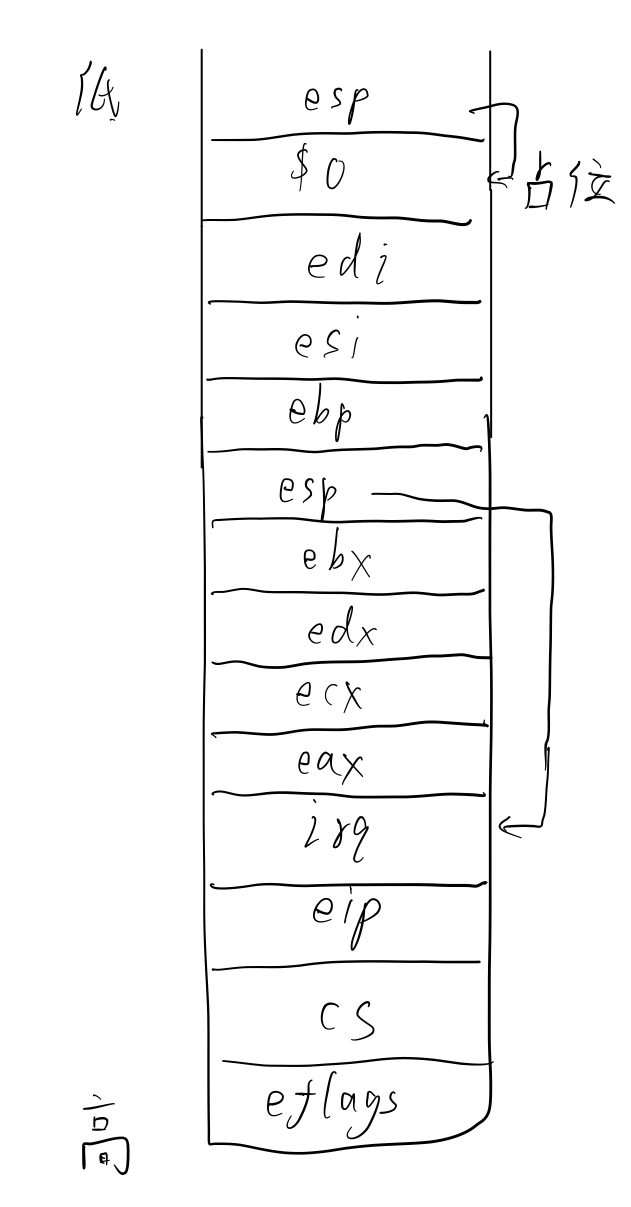 低
esp
$0
占位
edi
esi
ebp
esp
ebx
edx
ecx
eax
irq
eip
cs
eflags
高